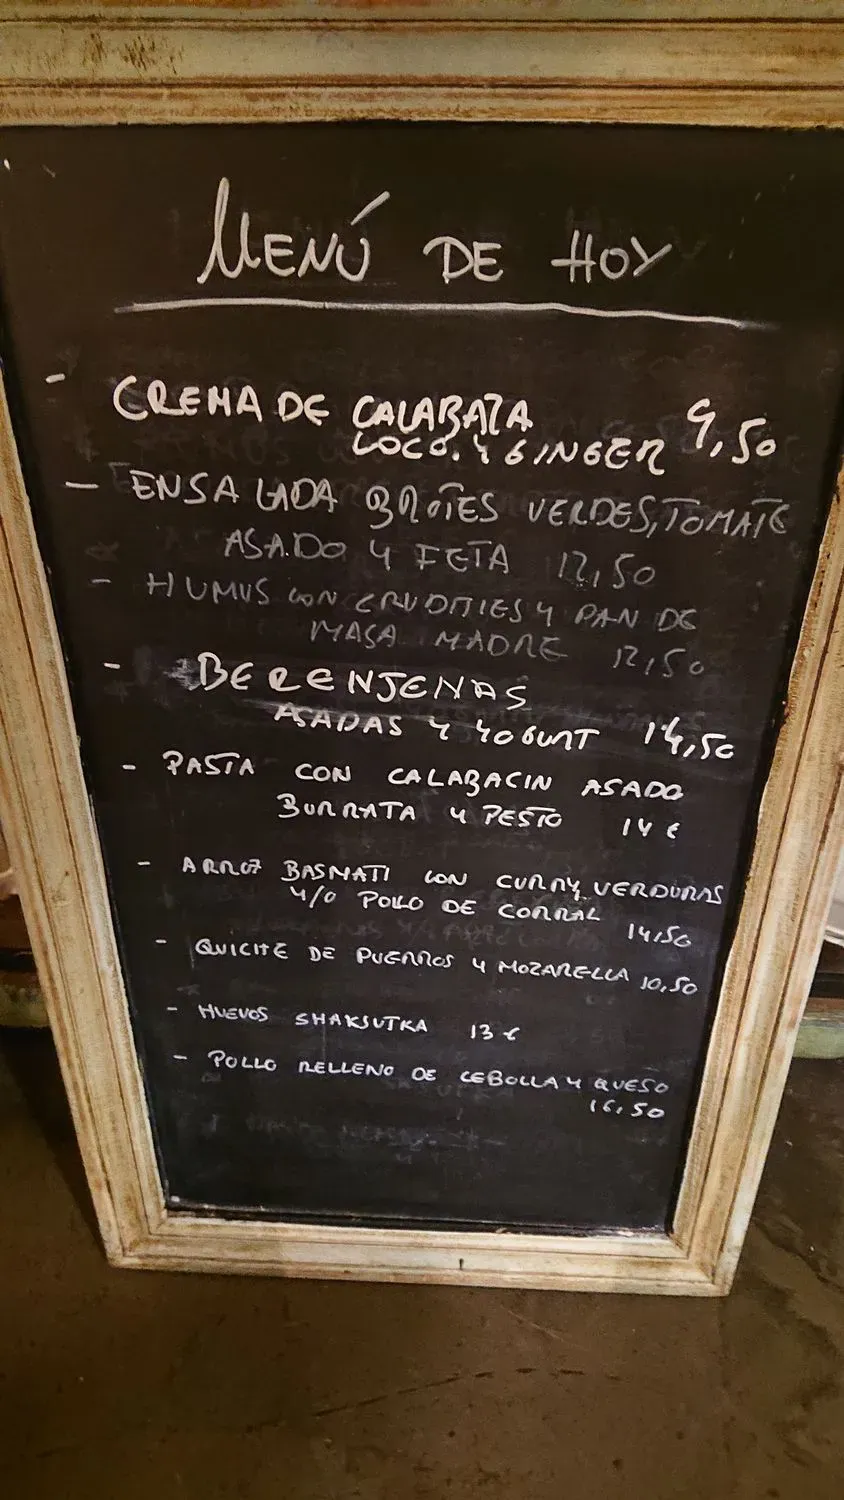 MENÚ DE HOY
- CREMA DE CALABAZA 9,50
COCO. Y GINGER
- ENSALADA BROTES VERDES, TOMATE
ASADO Y FETA 12,50
- HUMUS CON CRUDITIES Y PAN DE
MASA MADRE 12,50
- BERENJENAS
ASADAS Y YOGURT 14,50
- PASTA CON CALABACIN ASADO
BURRATA Y PESTO 14 €
- ARROZ BASMATI CON CURRY, VERDURAS
Y/O POLLO DE CORRAL
14,50
- QUICHE DE PUERROS Y MOZARELLA 10,50
- HUEVOS SHAKSUTKA 13 €
- POLLO RELLENO DE CEBOLLA Y QUESO
16,50